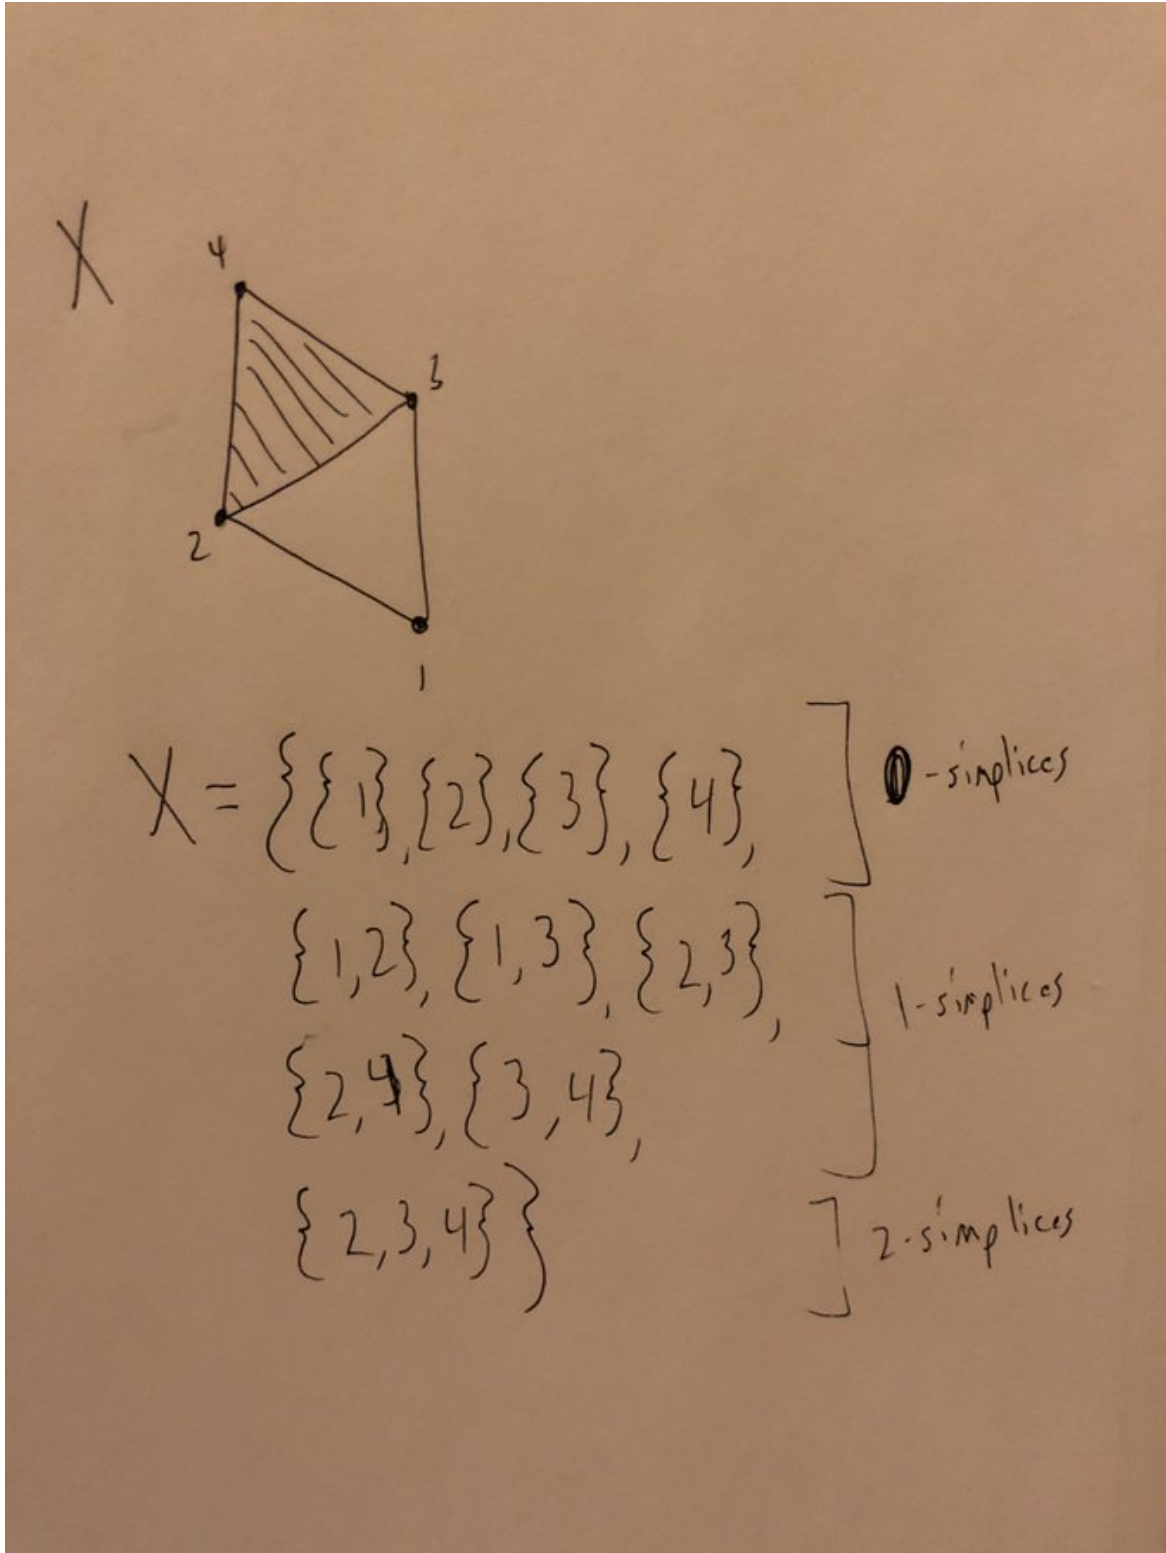 X
4
3
2
1
X = {{1},{2},{3},{4}, 0-simplices
{1,2},{1,3},{2,3}, 1-simplices
{2,4},{3,4},
{2,3,4}} 2-simplices